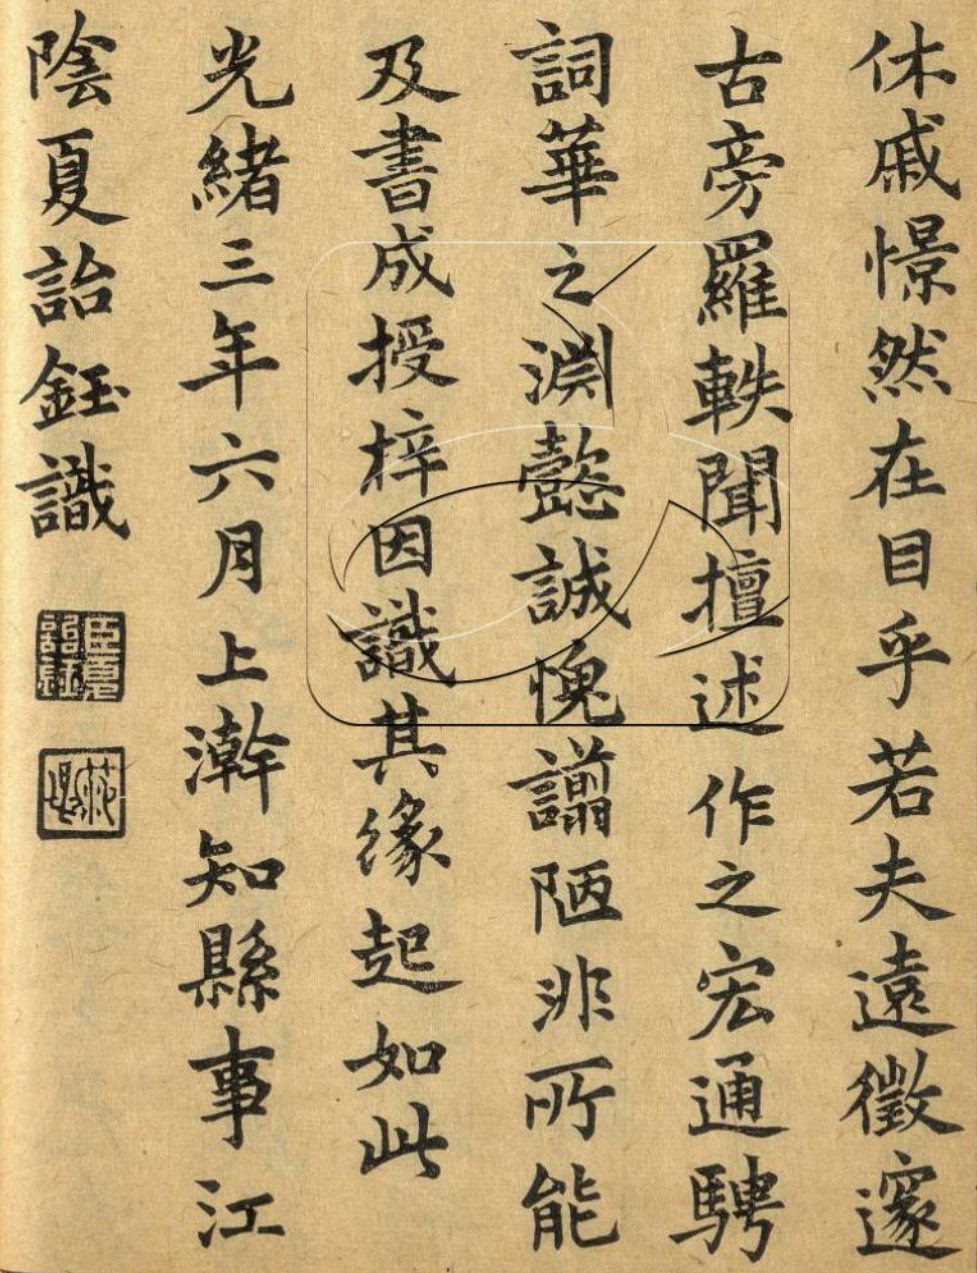 休戚憬然在目乎若夫遠徵邃
古旁羅軼聞擅述作之宏通騁
詞華之淵懿誠愧譾陋非所能
及書成授梓因識其緣起如此
光緒三年六月上澣知縣事江
陰夏詒鈺識
臣夏詒鈺